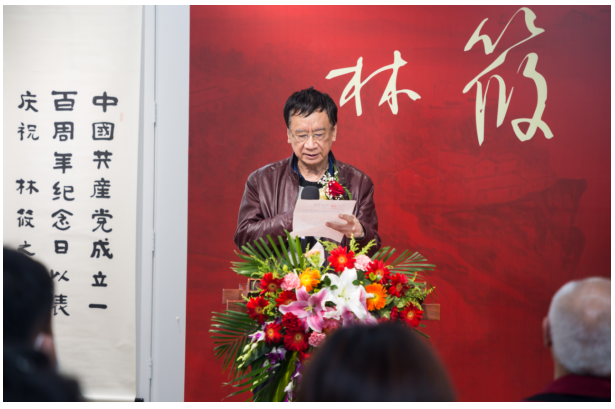 中國共産党成立一
百周年纪念日以表
庆祝 林筱之
林 筱